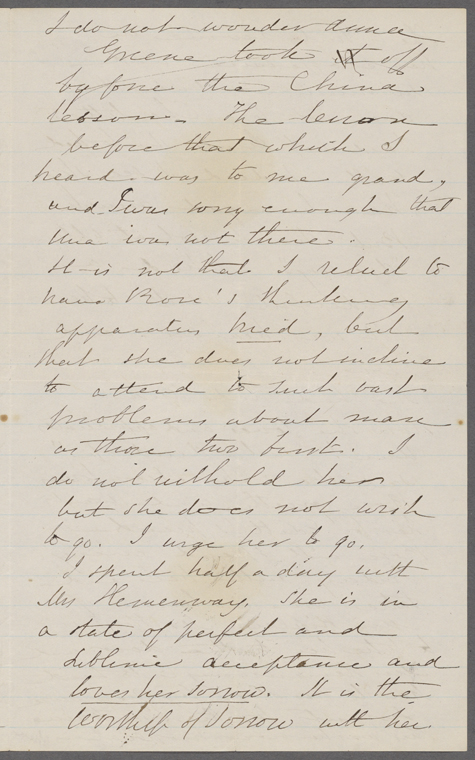 I do not wonder
Greene took it off
before the China
lesson - The lesson
before that which I
heard was to me grand,
and I was sorry enough that
Una was not there.
It is not that I rebel to
have Rose's thinking
apparatus tried, but
that she does not incline
to attend to such vast
problems about man
as those two burst. I
do not withold her
but she does not wish
to go. I urge her to go.
I spent half a day with
Mrs Hemenway. She is in
a state of perfect and
sublime acceptance and
loves her sorrow. It is the
Worship of Sorrow with her